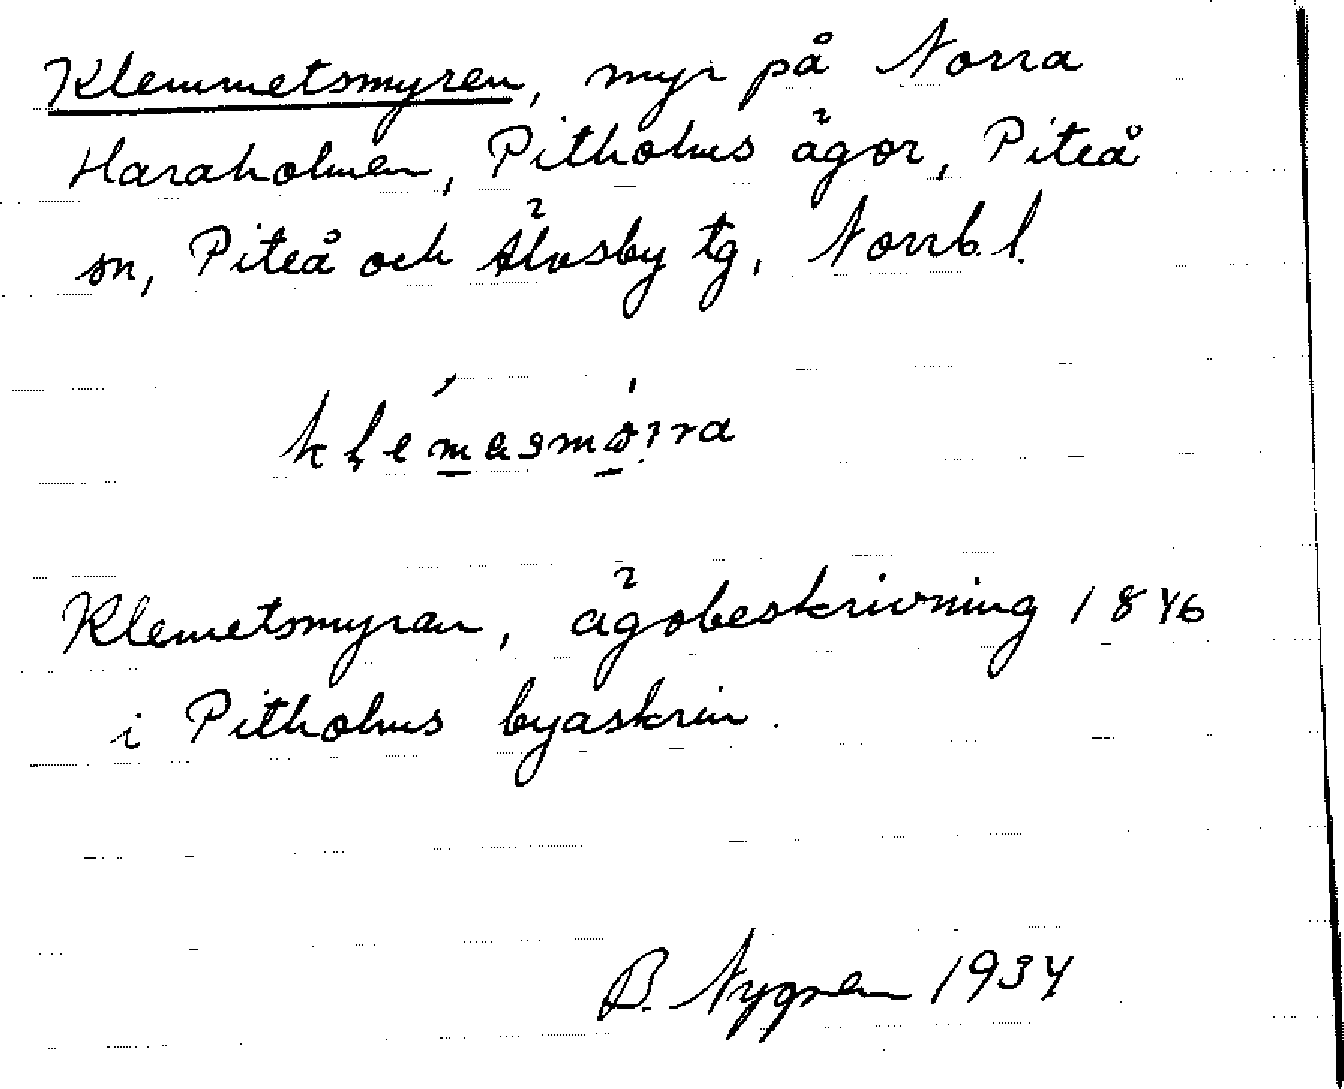 Klemmetsmyren, myr på Norra
Haraholmen, Pitholms ägor, Piteå
sn, Piteå och Älvsby tg, Norrb. l.
Klemetsmyran, ägobeskrivning 1846
i Pitholms byaskrin.
B. Nygren 1934